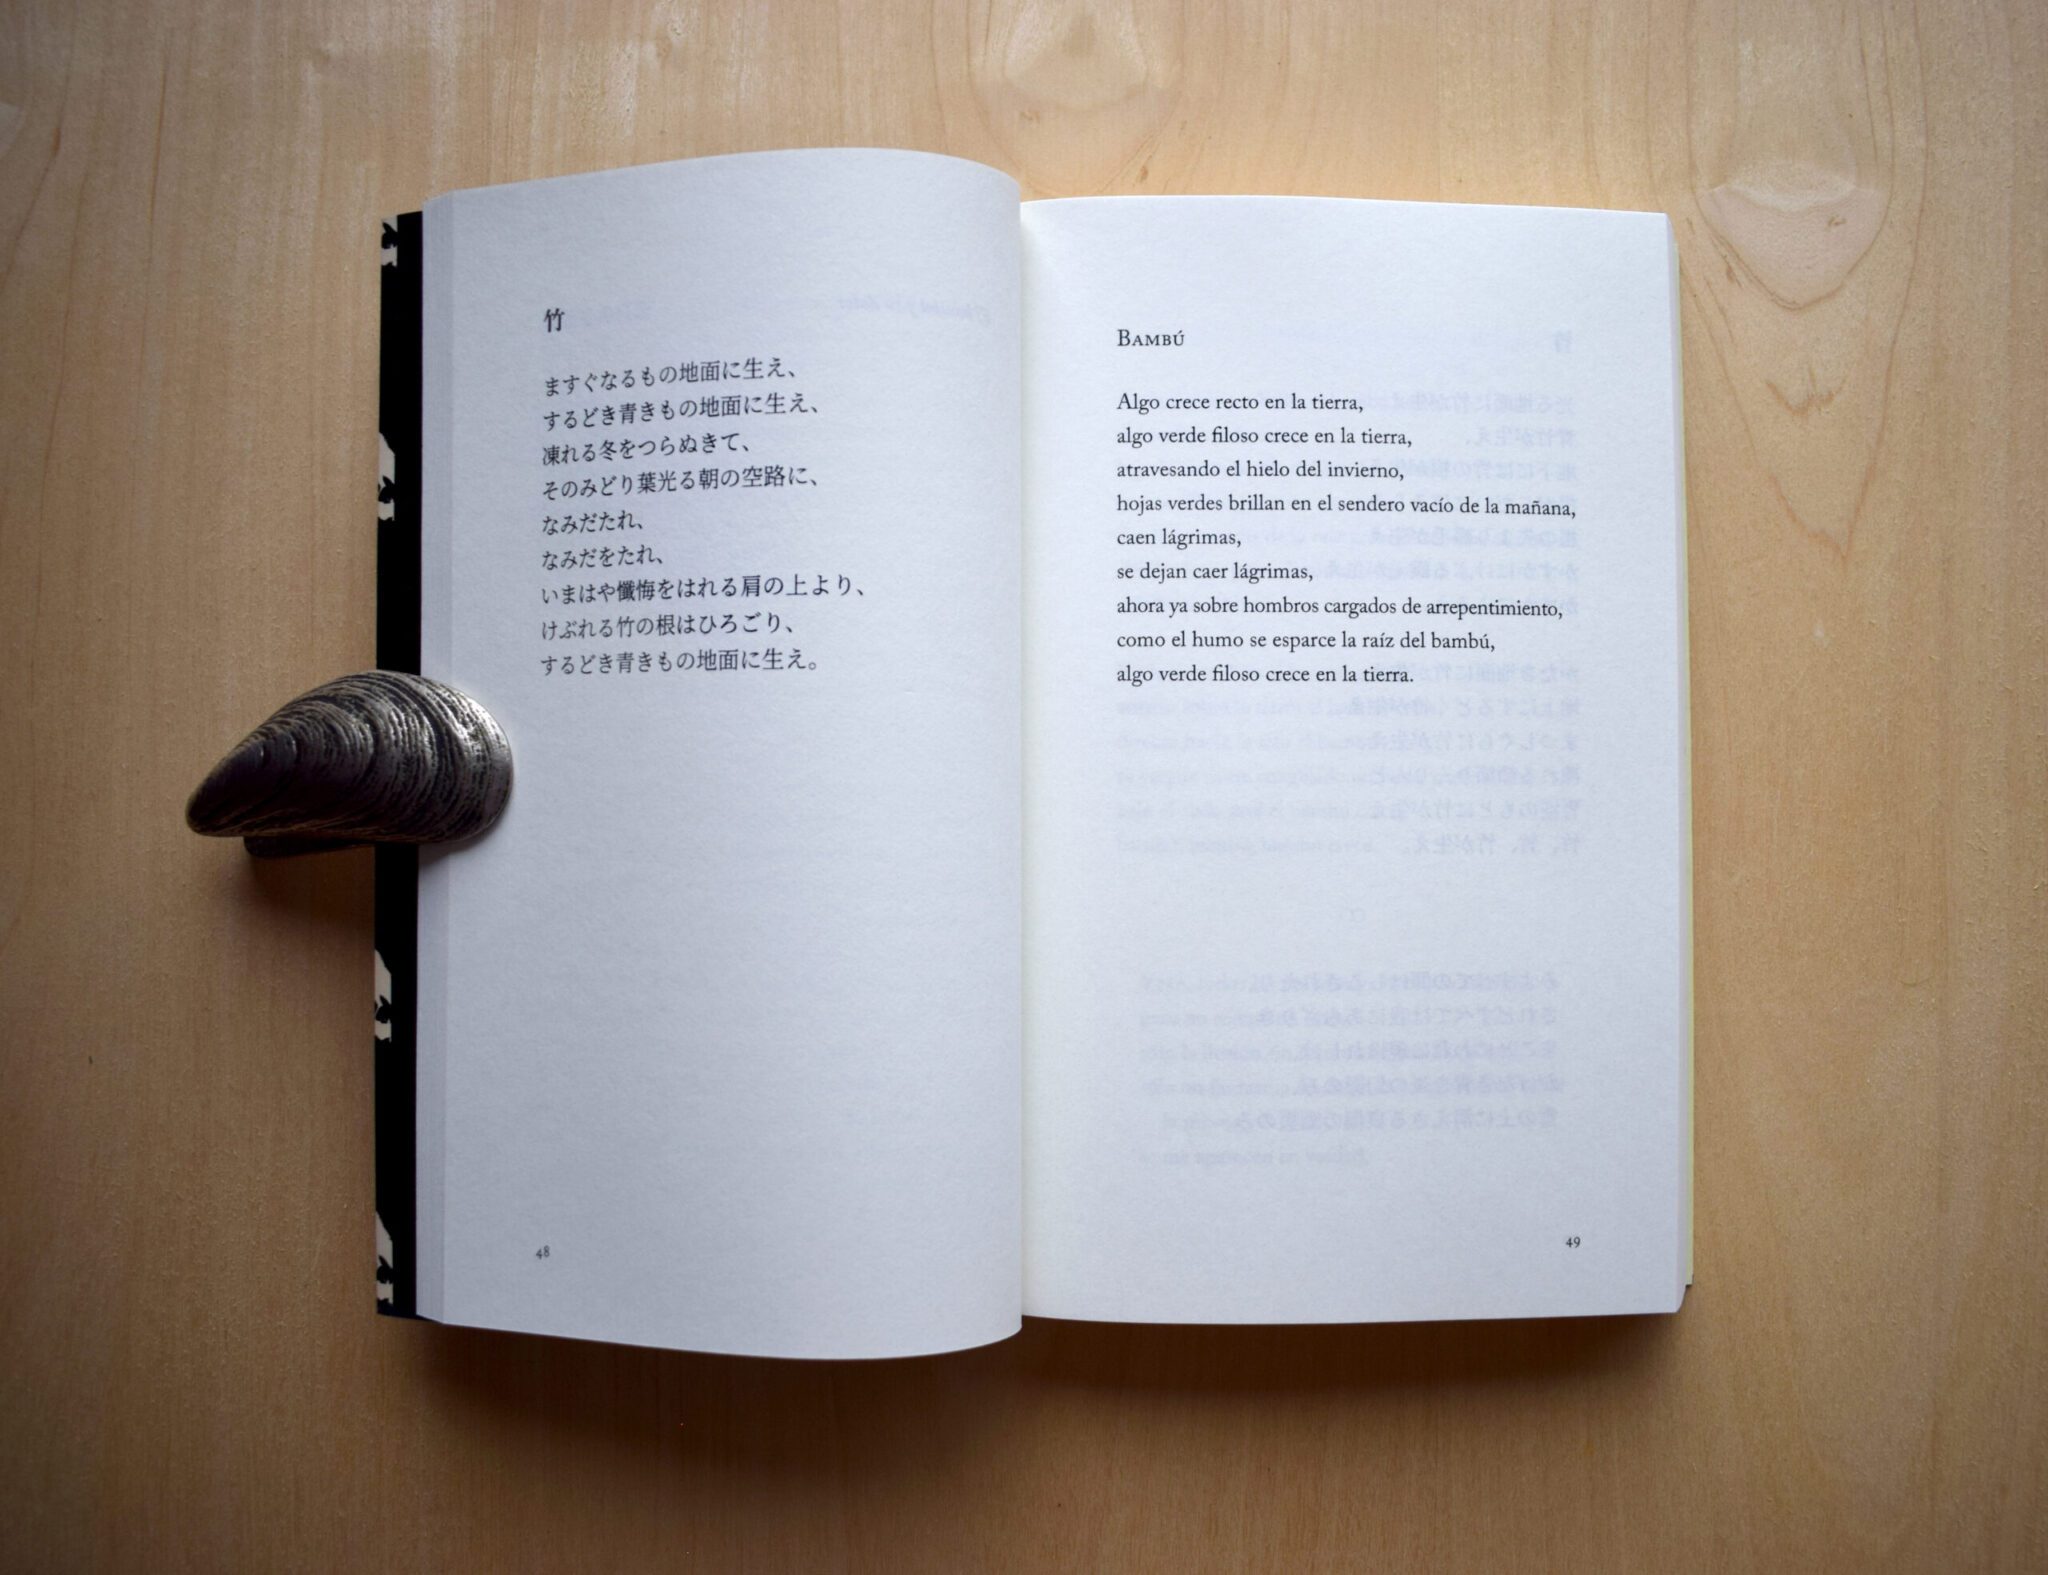 竹
ますぐなるもの地面に生え、
するどき青きもの地面に生え、
凍れる冬をつらぬきて、
そのみどり葉光る朝の空路に、
なみだたれ、
なみだをたれ、
いまはや懺悔をはれる肩の上より、
けぶれる竹の根はひろごり、
するどき青きもの地面に生え。
48
BAMBÚ
Algo crece recto en la tierra,
algo verde filoso crece en la tierra,
atravesando el hielo del invierno,
hojas verdes brillan en el sendero vacío de la mañana,
caen lágrimas,
se dejan caer lágrimas,
ahora ya sobre hombros cargados de arrepentimiento,
como el humo se esparce la raíz del bambú,
algo verde filoso crece en la tierra.
49